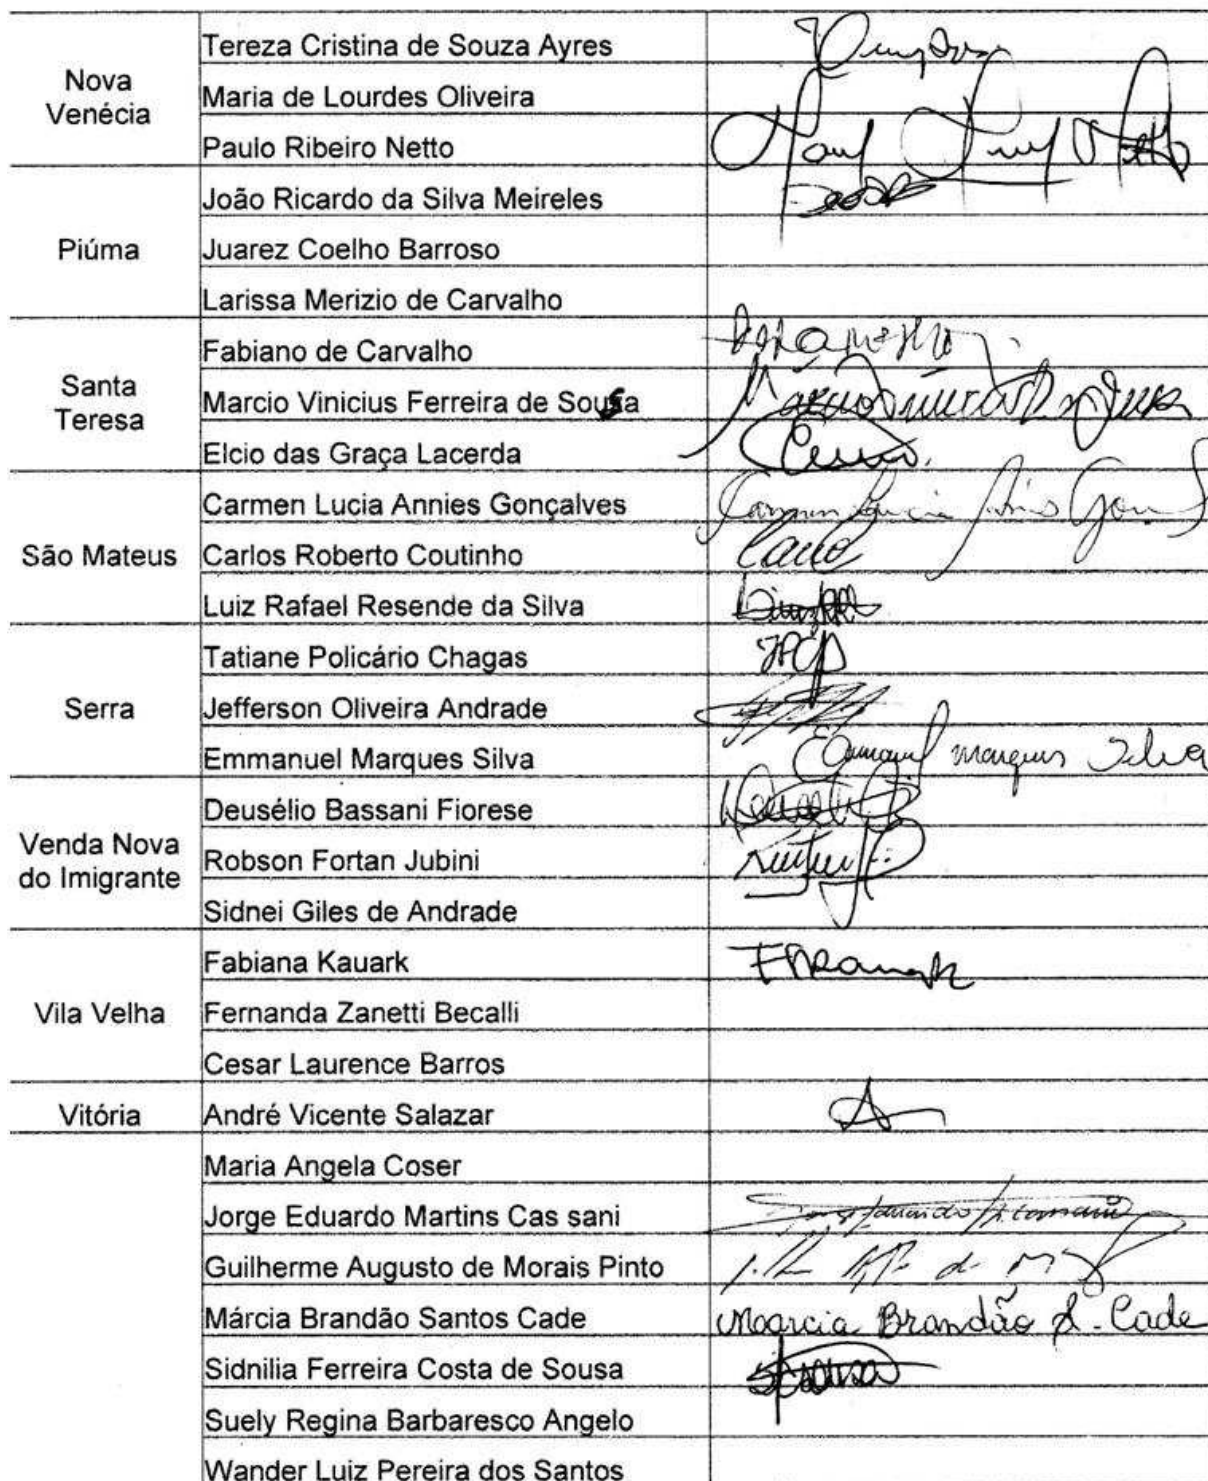 Nova Venécia
Tereza Cristina de Souza Ayres
Maria de Lourdes Oliveira
Paulo Ribeiro Netto
Piúma
João Ricardo da Silva Meireles
Juarez Coelho Barroso
Larissa Merizio de Carvalho
Santa Teresa
Fabiano de Carvalho
Marcio Vinicius Ferreira de Sousa
Elcio das Graça Lacerda
São Mateus
Carmen Lucia Annies Gonçalves
Carlos Roberto Coutinho
Luiz Rafael Resende da Silva
Serra
Tatiane Policário Chagas
Jefferson Oliveira Andrade
Emmanuel Marques Silva Emmanuel Marques Silva
Venda Nova do Imigrante
Deusélio Bassani Fiorese
Robson Fortan Jubini
Sidnei Giles de Andrade
Vila Velha
Fabiana Kauark
Fernanda Zanetti Becalli
Cesar Laurence Barros
Vitória
André Vicente Salazar
Maria Angela Coser
Jorge Eduardo Martins Cas sani
Guilherme Augusto de Morais Pinto
Márcia Brandão Santos Cade Marcia Brandão S. Cade
Sidnilia Ferreira Costa de Sousa
Suely Regina Barbaresco Angelo
Wander Luiz Pereira dos Santos